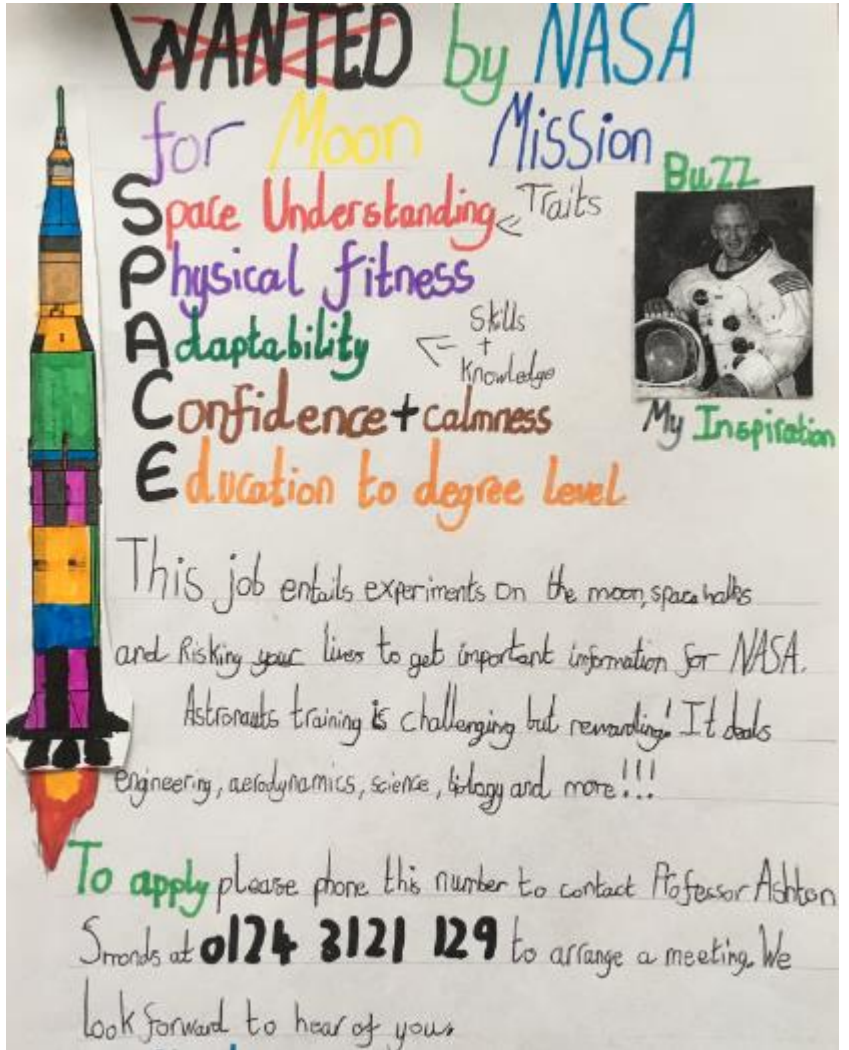 WANTED by NASA
for Moon Mission
Buzz
Space Understanding
Traits
Physical fitness
Adaptability
Skills
+
Knowledge
Confidence + calmness
My Inspiration
Education to degree level
This job entails experiments on the moon, space walks
and Risking your lives to get important information for NASA.
Astronauts training is challenging but rewarding! It deals
engineering, aerodynamics, science, biology and more!!!
To apply please phone this number to contact Professor Ashton
at 0124 3121 129 to arrange a meeting. We
look forward to hear of you.